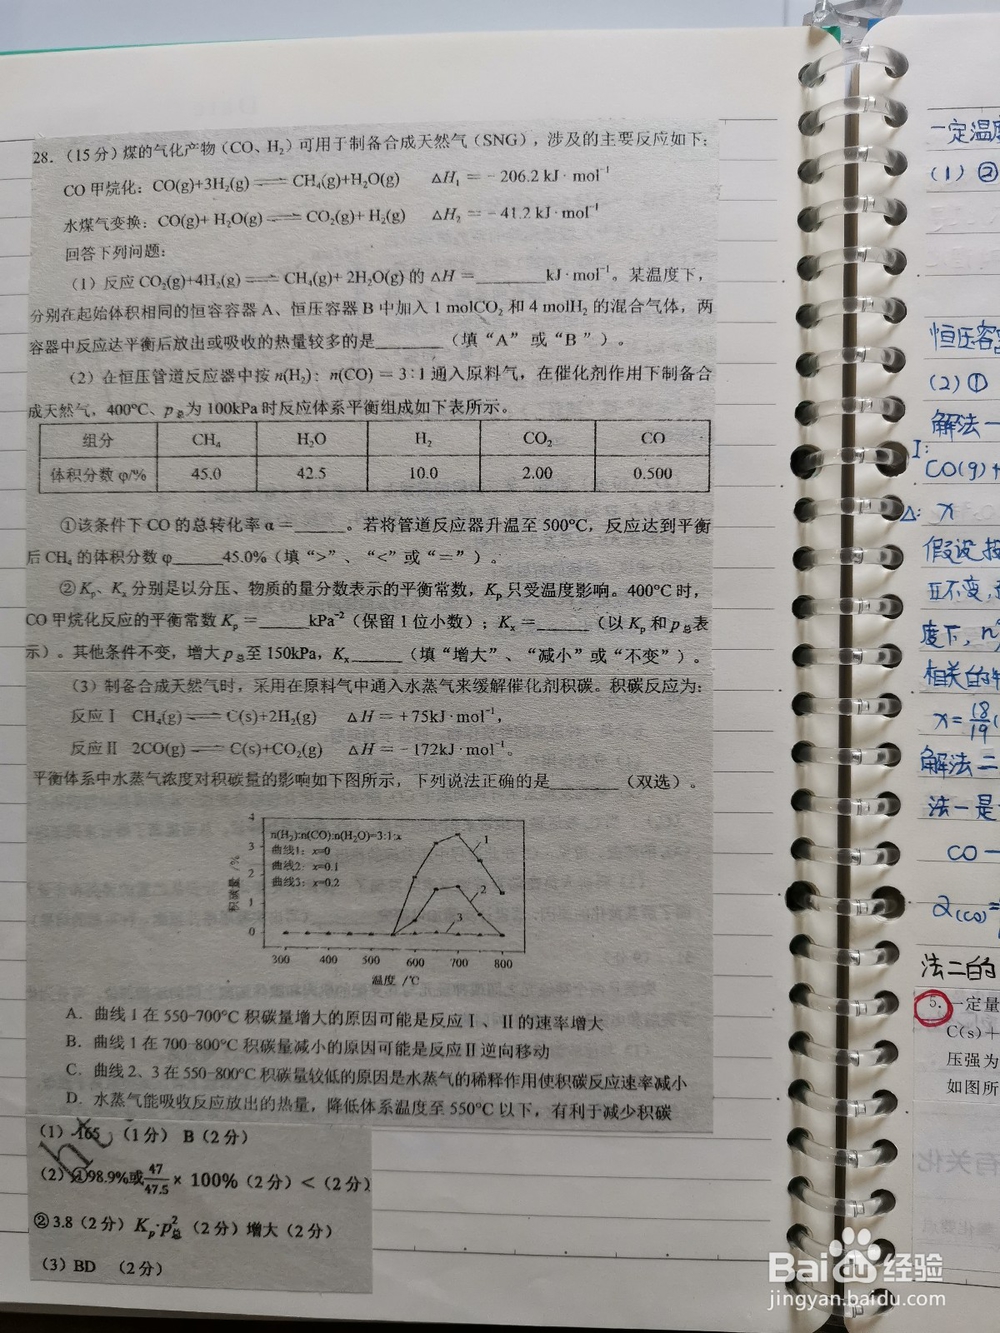 28．（15分）煤的气化产物（CO、H₂）可用于制备合成天然气（SNG），涉及的主要反应如下：
CO甲烷化：CO(g)+3H₂(g)⇌CH₄(g)+H₂O(g)　△H₁=-206.2 kJ·mol⁻¹
水煤气变换：CO(g)+ H₂O(g)⇌CO₂(g)+ H₂(g)　△H₂=-41.2 kJ·mol⁻¹
回答下列问题：
（1）反应CO₂(g)+4H₂(g)⇌CH₄(g)+ 2H₂O(g)的△H＝______kJ·mol⁻¹。某温度下，
分别在起始体积相同的恒容容器A、恒压容器B中加入1 molCO₂和4 molH₂的混合气体，两
容器中反应达平衡后放出或吸收的热量较多的是______（填“A” 或“B ”）。
（2）在恒压管道反应器中按n(H₂)：n(CO)＝3∶1通入原料气，在催化剂作用下制备合
成天然气，400℃、p总为100kPa时反应体系平衡组成如下表所示。
组分 CH₄ H₂O H₂ CO₂ CO
体积分数φ/% 45.0 42.5 10.0 2.00 0.500
①该条件下CO的总转化率α＝______。若将管道反应器升温至500℃，反应达到平衡
后CH₄的体积分数φ______45.0%（填“>”、“<”或“=”）。
②Kp、Kx分别是以分压、物质的量分数表示的平衡常数，Kp只受温度影响。400℃时，
CO甲烷化反应的平衡常数Kp＝______kPa⁻²（保留1位小数）；Kx＝______（以Kp和p总表
示）。其他条件不变，增大p总至150kPa，Kx______（填“增大”、“减小”或“不变”）。
（3）制备合成天然气时，采用在原料气中通入水蒸气来缓解催化剂积碳。积碳反应为：
反应Ⅰ　CH₄(g)⇌C(s)+2H₂(g)　△H＝+75kJ·mol⁻¹，
反应Ⅱ　2CO(g)⇌C(s)+CO₂(g)　△H＝-172kJ·mol⁻¹。
平衡体系中水蒸气浓度对积碳量的影响如下图所示，下列说法正确的是______（双选）。
n(H₂):n(CO):n(H₂O)=3:1:x
曲线1：x=0
曲线2：x=0.1
曲线3：x=0.2
积碳量 /%
4
3
2
1
0
1
2
3
300 400 500 600 700 800
温度 /℃
A．曲线1在550-700℃积碳量增大的原因可能是反应Ⅰ、Ⅱ的速率增大
B．曲线1在700-800℃积碳量减小的原因可能是反应Ⅱ逆向移动
C．曲线2、3在550-800℃积碳量较低的原因是水蒸气的稀释作用使积碳反应速率减小
D．水蒸气能吸收反应放出的热量，降低体系温度至550℃以下，有利于减少积碳
（1）-165（1分） B（2分）
（2）①98.9%或47/47.5× 100%（2分）＜（2分）
②3.8（2分）Kp·p²总（2分）增大（2分）
（3）BD （2分）
一定温度
（1）②
恒压容
（2）①
解法一
I:
CO(g)+
△: x
假设按
压不变,
度下，n
相关的
x=18/19(
解法二
法一是
CO—
α(CO)=
法二的
5. 一定量
C(s)＋
压强为
如图所
Baidu经验
jingyan.baidu.com